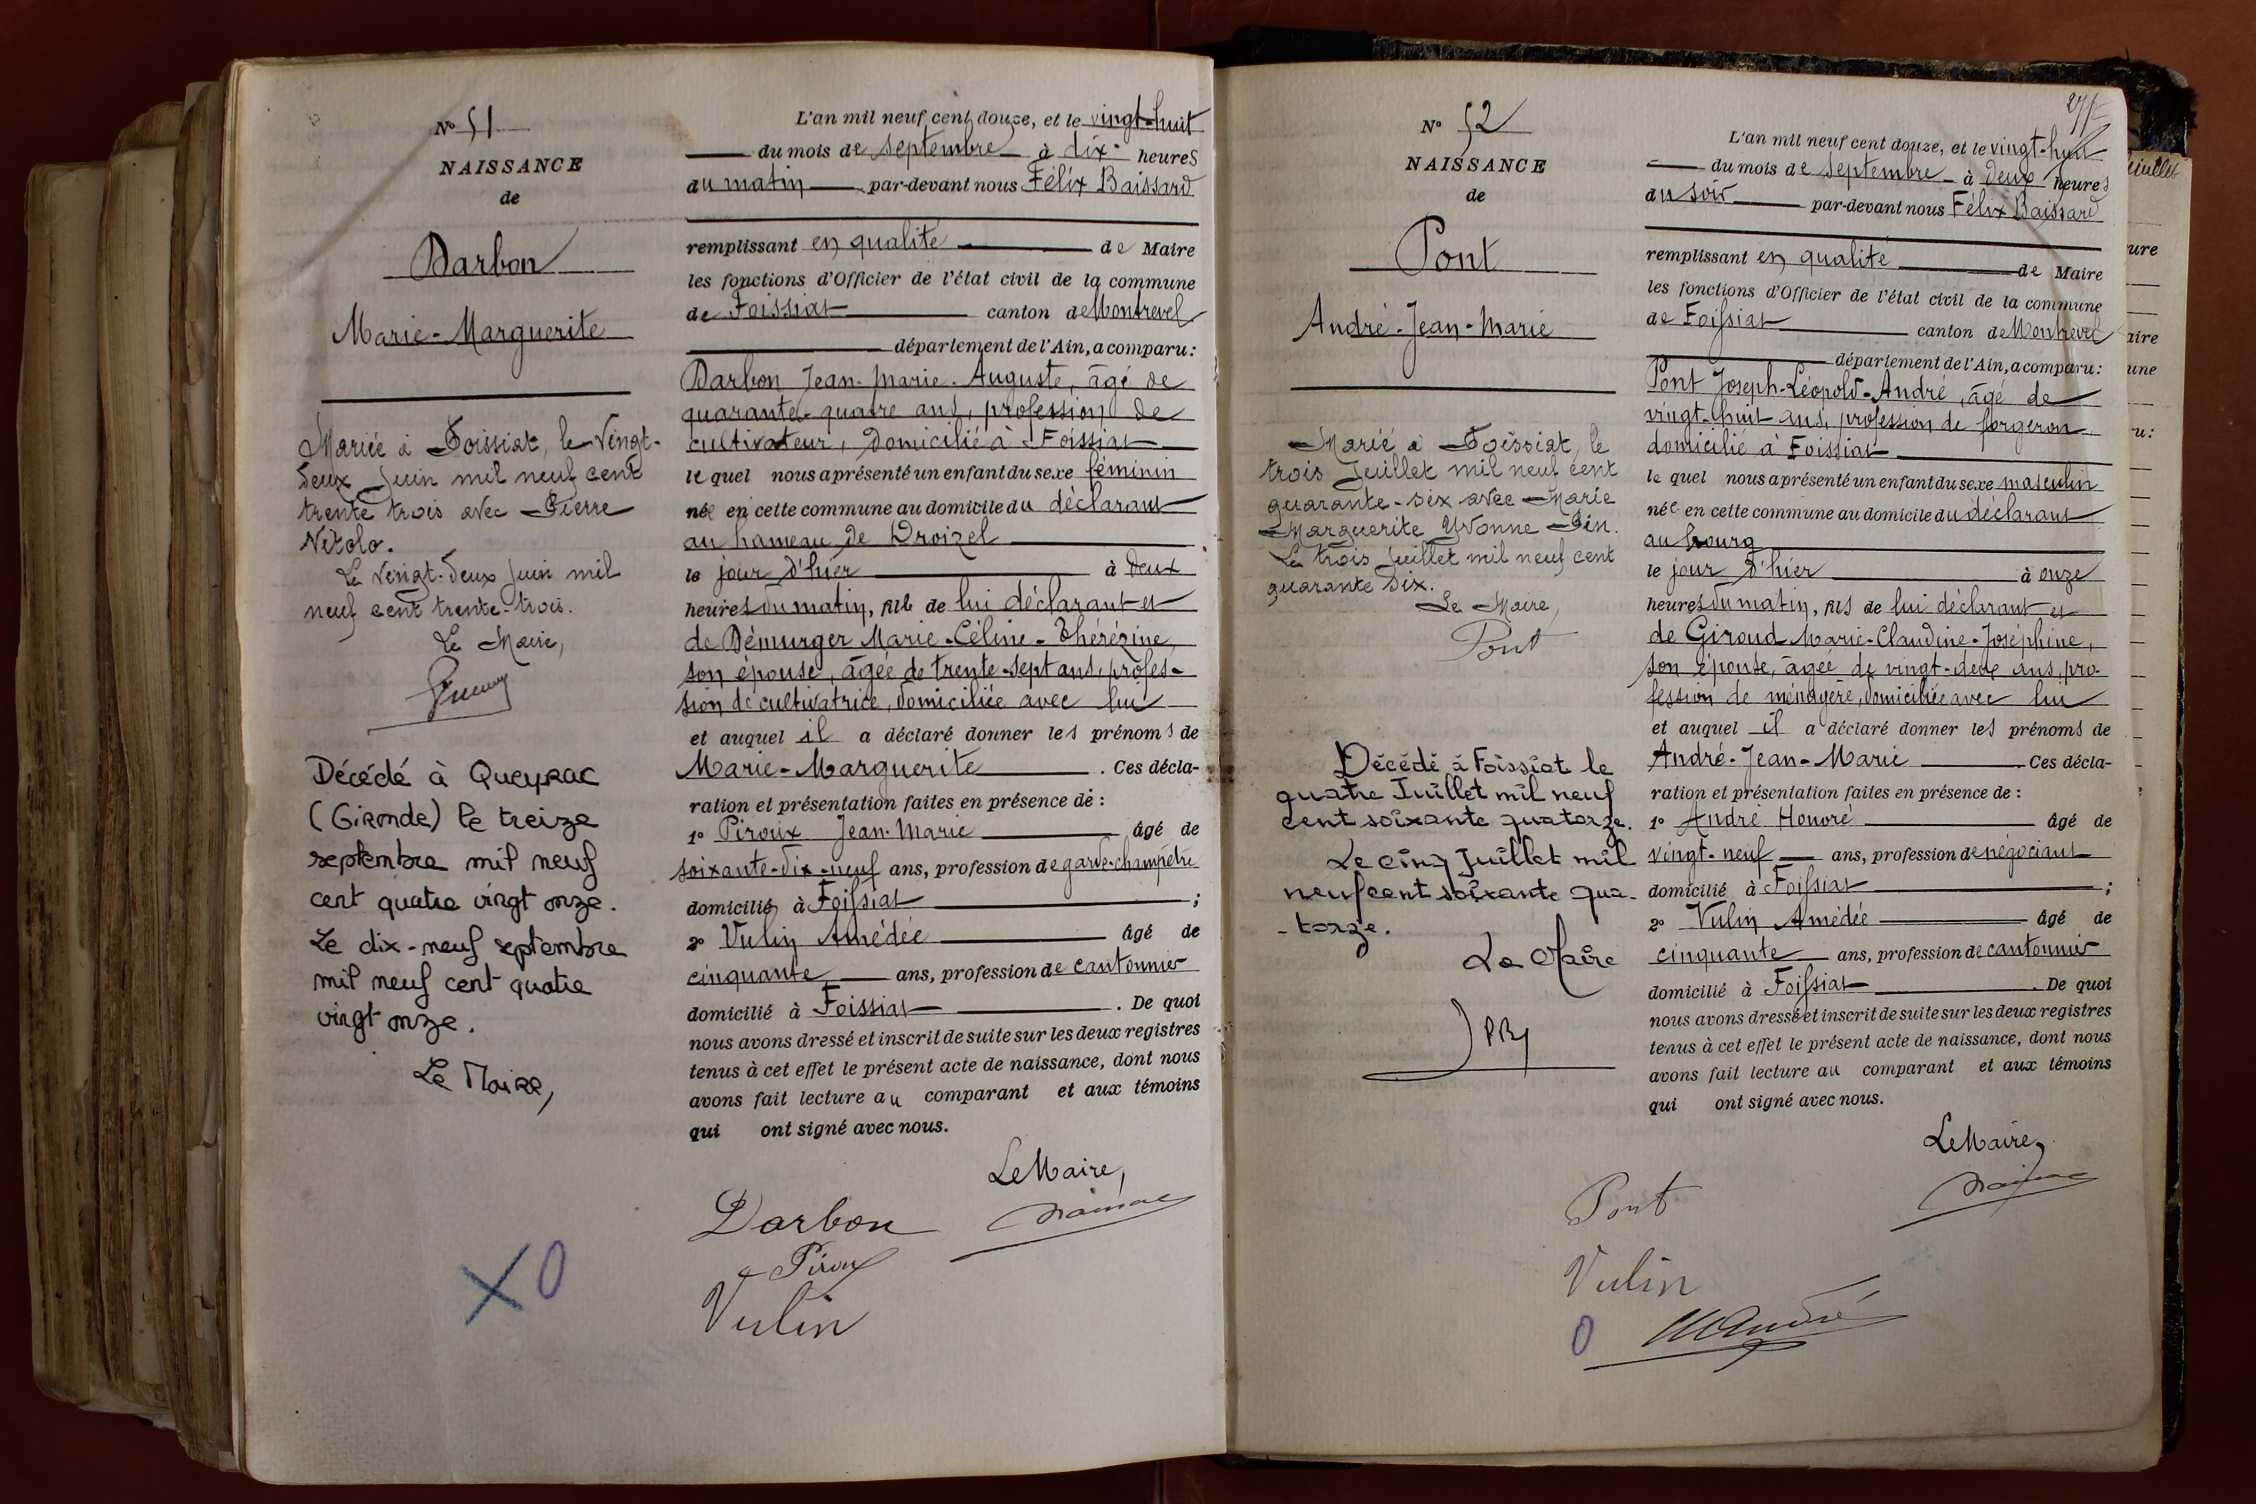 N° 51
NAISSANCE
de
Darbon
Marie-Marguerite
Mariée à Foissiat, le vingt-
deux Juin mil neuf cent
trente trois avec Pierre
Nitolo.
Le vingt-deux juin mil
neuf cent trente-trois.
Le Maire,
Décédé à Queyrac
(Gironde) le treize
septembre mil neuf
cent quatre vingt onze.
Le dix-neuf septembre
mil neuf cent quatre
vingt onze.
Le Maire,
X 0
L'an mil neuf cent douze, et le vingt-huit
du mois de septembre à dix heures
du matin par-devant nous Félix Baissard
remplissant en qualité de Maire
les fonctions d'Officier de l'état civil de la commune
de Foissiat canton de Montrevel
département de l'Ain, a comparu:
Darbon Jean-Marie-Auguste, âgé de
quarante-quatre ans, profession de
cultivateur, domicilié à Foissiat
le quel nous a présenté un enfant du sexe féminin
née en cette commune au domicile du déclarant
au hameau de Droizel
le jour d'hier à deux
heures du matin, fille de lui déclarant et
de Démurger Marie-Céline-Thérézine,
son épouse, âgée de trente-sept ans, profes-
sion de cultivatrice, domiciliée avec lui
et auquel il a déclaré donner les prénoms de
Marie-Marguerite. Ces décla-
ration et présentation faites en présence de:
1° Piroux Jean-Marie âgé de
soixante-dix-neuf ans, profession de garde-champêtre
domicilié à Foissiat;
2° Vulin Amédée âgé de
cinquante ans, profession de cantonnier
domicilié à Foissiat. De quoi
nous avons dressé et inscrit de suite sur les deux registres
tenus à cet effet le présent acte de naissance, dont nous
avons fait lecture au comparant et aux témoins
qui ont signé avec nous.
Le Maire,
Darbon
Piroux
Vulin
277
N° 52
NAISSANCE
de
Pont
André-Jean-Marie
Marié à Foissiat, le
trois Juillet mil neuf cent
quarante-six avec Marie
Marguerite Yvonne Pin.
Le trois Juillet mil neuf cent
quarante six.
Le Maire,
Pont
Décédé à Foissiat le
quatre Juillet mil neuf
cent soixante quatorze.
Le cinq Juillet mil
neuf cent soixante qua-
-torze.
Le Maire
L'an mil neuf cent douze, et le vingt-huit
du mois de septembre à deux heures
du soir par-devant nous Félix Baissard
remplissant en qualité de Maire
les fonctions d'Officier de l'état civil de la commune
de Foissiat canton de Montrevel
département de l'Ain, a comparu:
Pont Joseph-Léopold-André, âgé de
vingt-huit ans, profession de forgeron
domicilié à Foissiat
le quel nous a présenté un enfant du sexe masculin
né en cette commune au domicile du déclarant
au bourg
le jour d'hier à onze
heures du matin, fils de lui déclarant et
de Giroud Marie-Claudine-Joséphine,
son épouse, âgée de vingt-deux ans, pro-
fession de ménagère, domiciliée avec lui
et auquel il a déclaré donner les prénoms de
André-Jean-Marie Ces décla-
ration et présentation faites en présence de:
1° André Honoré âgé de
vingt-neuf ans, profession de négociant
domicilié à Foissiat;
2° Vulin Amédée âgé de
cinquante ans, profession de cantonnier
domicilié à Foissiat. De quoi
nous avons dressé et inscrit de suite sur les deux registres
tenus à cet effet le présent acte de naissance, dont nous
avons fait lecture au comparant et aux témoins
qui ont signé avec nous.
Le Maire,
Pont
Vulin
0
H André